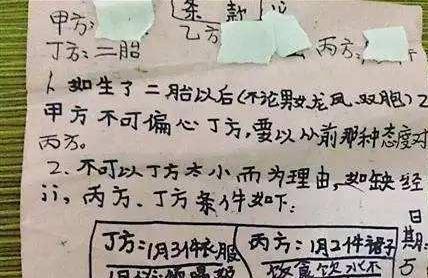 条款
甲方:
乙方
丙方:
丁方:二胎
1.如生了二胎以后(不论男女龙凤双胞)
甲方不可偏心丁方,要以从前那种态度对
丙方。
2.不可以丁方太小而为理由,如缺经
济,丙方、丁方条件如下:
丁方:1月3件衣服
丙方:1月2件裙子
日
期: